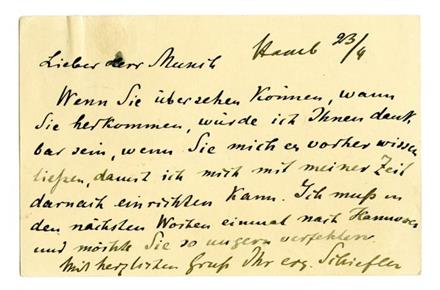 Hamb 23/4
Lieber Herr Munch
Wenn Sie übersehen können, wann
Sie herkommen, würde ich Ihnen dank
bar sein, wenn Sie mich es vorher wissen
ließen, damit ich mich mit meiner Zeit
darnach einrichten kann. Ich muß in
den nächsten Wochen einmal nach Hannover
und möchte Sie so ungern verfehlen.
Mit herzlichem Gruß Ihr erg. Schiefler